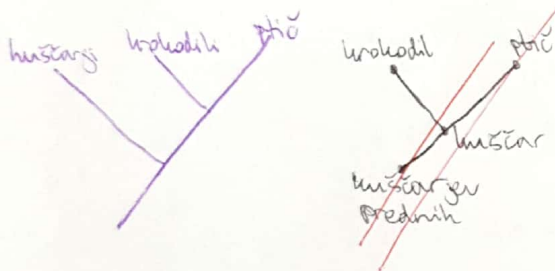 kuščarji
krokodili
ptič
krokodil
ptič
kuščar
kuščarjev
prednik